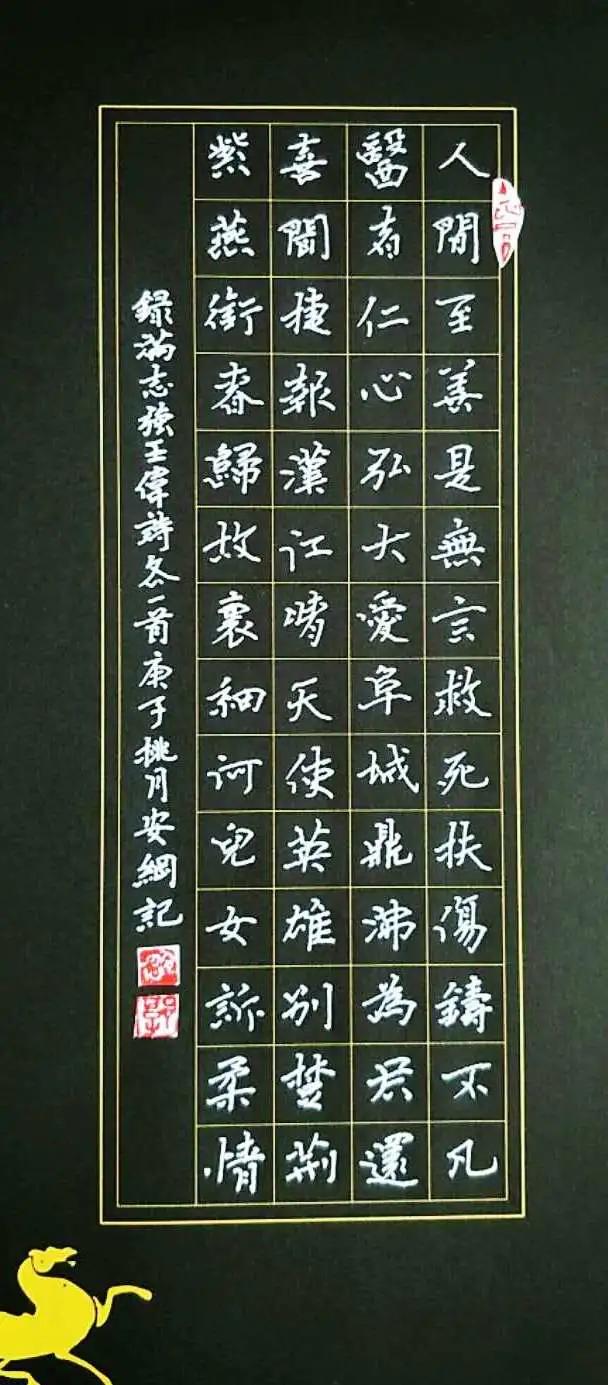 人間至善是無言救死扶傷鑄不凡
醫者仁心弘大愛阜城鼎沸為君還
喜聞捷報漢江晴天使英雄別楚荊
紫燕銜春歸故裏細訶兒女訴柔情
錄滿志強王偉詩各一首庚子桃月安綱記